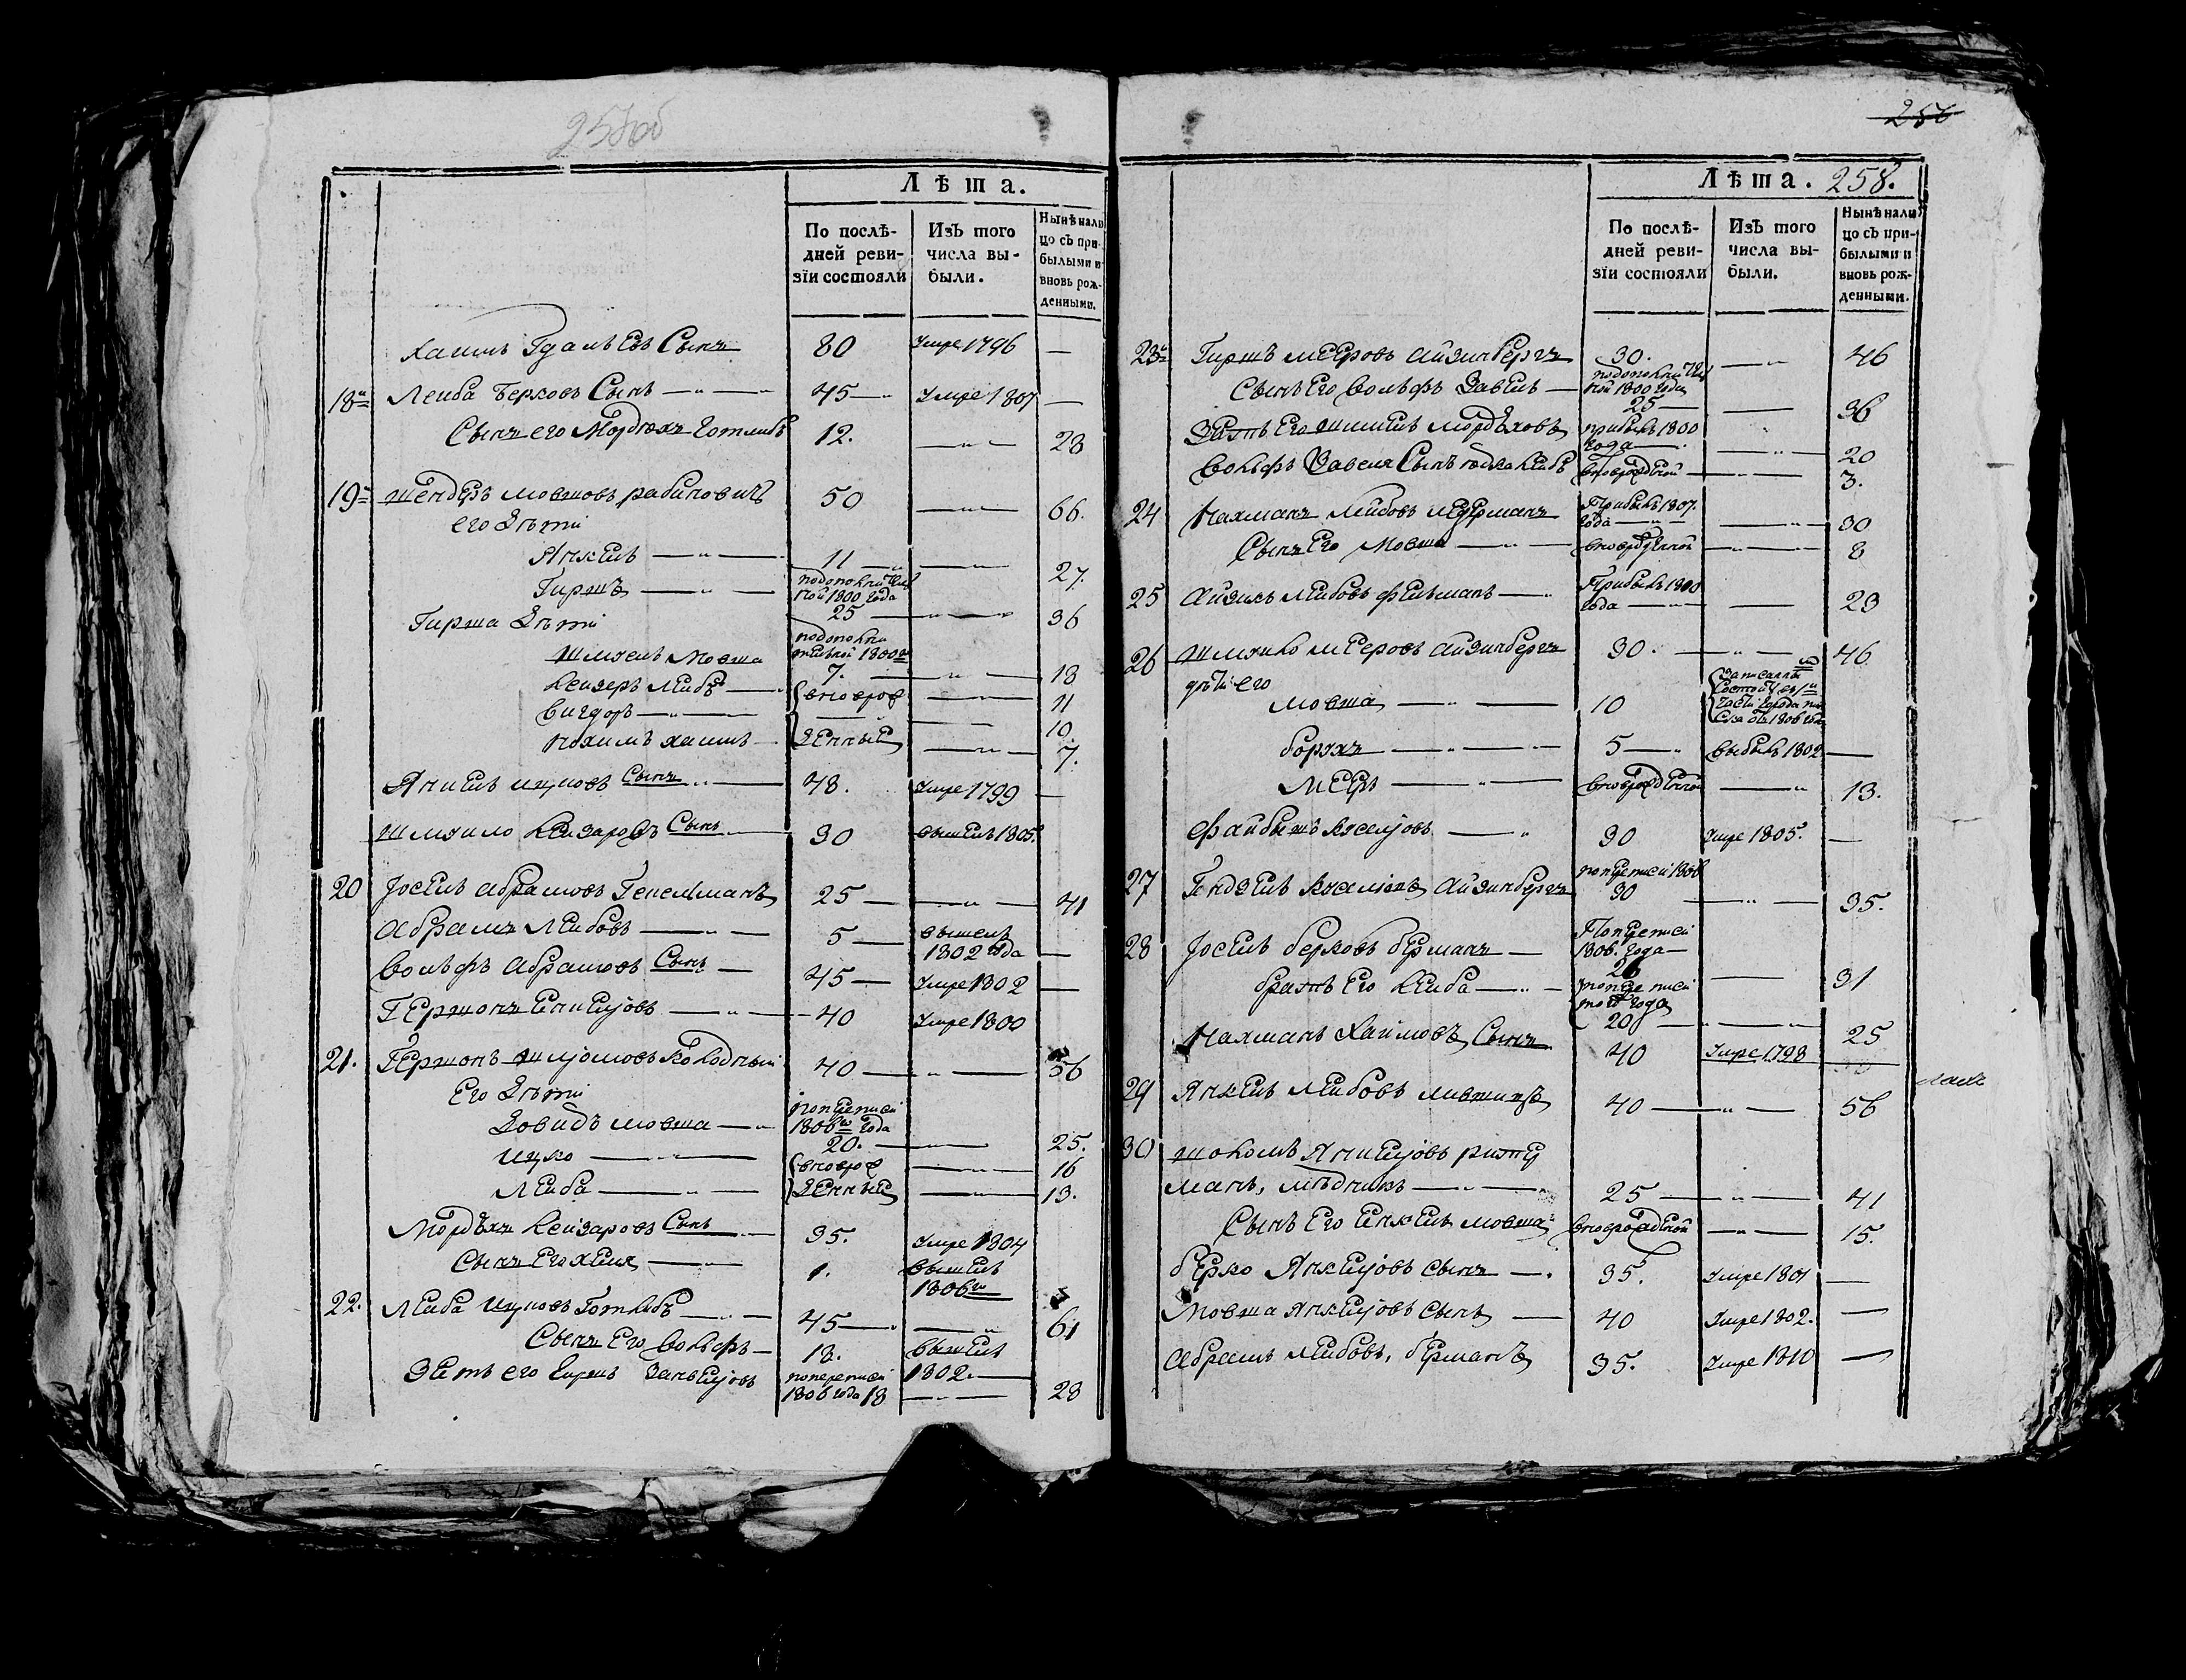 257об
Лѣта.
По послѣ-
дней реви-
зіи состояли
Изъ того
числа вы-
были.
Нынѣ нали
цо съ при-
былыми и
вновь рож-
денными.
Хаимъ Гдалѣевъ Сынъ 80 Умре 1796 —
18й Леиба Берковъ Сынъ — 45 — Умре 1807 —
Сынъ его Мордхъ Готлибъ 12. — 28
19й Шендеръ Мовшовъ Рабиновичъ 50 — 66.
его Дѣти
Янкель — 11 — 27.
Гиршъ — по дополнител
ной 1800 года
25 — 36
Гирша Дѣти
Шмуель Мовша по дополни
тельной 1800го
7. — 18
Леизеръ Леибъ — вноврож 11
Вигдоръ — 10
Нохимъ Хаимъ — денные — 7.
Янкель Ицковъ Сынъ — 48. Умре 1799 —
Шмуило Леизаровъ Сынъ — 30 вышелъ 1805.
20 Іосель Абрамовъ Гепельманъ 25 — 41
Абрамъ Леибовъ — 5 — вышелъ
1802 года —
Вольфъ Абрамовъ Сынъ — 45 — Умре 1802 —
Гершонъ — 40 Умре 1800
21. Гершонъ Шліомовъ Колодный 40 — 56
Его Дѣти
Довидъ Мовша — по переписи
1806го года
20. — 25.
Ицко — вноврож — 16
Леиба — денные — 13.
Мордхъ Леизаровъ Сынъ — 35. Умре 1804
Сынъ Его Хеим — 1. вышелъ
1806го
22. Леиба Ицковъ Готлибъ — 45 — 61
Сынъ Его Вольфъ — 13. вышелъ
1802. —
Зять его Гиршъ по переписи
1806 года 18 — 28
256
Лѣта. 258.
По послѣ-
дней реви-
зіи состояли
Изъ того
числа вы-
были.
Нынѣ нали
цо съ при-
былыми и
вновь рож-
денными.
23й Гиршъ Мееровъ Айзинбергъ 30. — 46
Сынъ Его Вольфъ Завель — по дополнител
ной 1800 года
25 — 36
Зять Его Шмуель Мордховъ прибылъ 1800
года — 20
Вольфъ Завеля Сынъ Юдка Леибъ вноврожденной — 3.
24 Нахманъ Леибовъ Ледерманъ Прибылъ 1807.
года — 30
Сынъ Его Мовша — вноврожденной — 8
25 Айзикъ Леибовъ Фельманъ — Прибылъ 1800
года — 23
26 Шмуило Мееровъ Айзинбергъ 30. — 46
дѣти его
Мовша — 10 Записалъ
части города
1806 года
Борухъ — 5 — выбылъ 1802 —
Меер — вноврожденной — 13.
Файбишъ — 30 Умре 1805. —
27 Гендзель Айзинбергъ по переписи 1806
30 — 35.
28 Іосель Берковъ Берманъ — По переписи
1806. года —
26 — 31
братъ Его Леиба — по переписи
того года
20 — 25
Нахманъ Хаимовъ Сынъ 40 Умре 1798
29 Янкель Леибовъ Лившицъ 40 — 56
30 Шоломъ Янкеліовъ
манъ, мѣдникъ — 25 — 41
Сынъ Его Янкель Мовша вноврожденной — 15.
Берко Янкеліовъ Сынъ — 35. Умре 1801 —
Мовша Янкеліовъ Сынъ — 40 Умре 1802. —
Абрамъ Леибовъ, Берманъ 35. Умре 1810 —